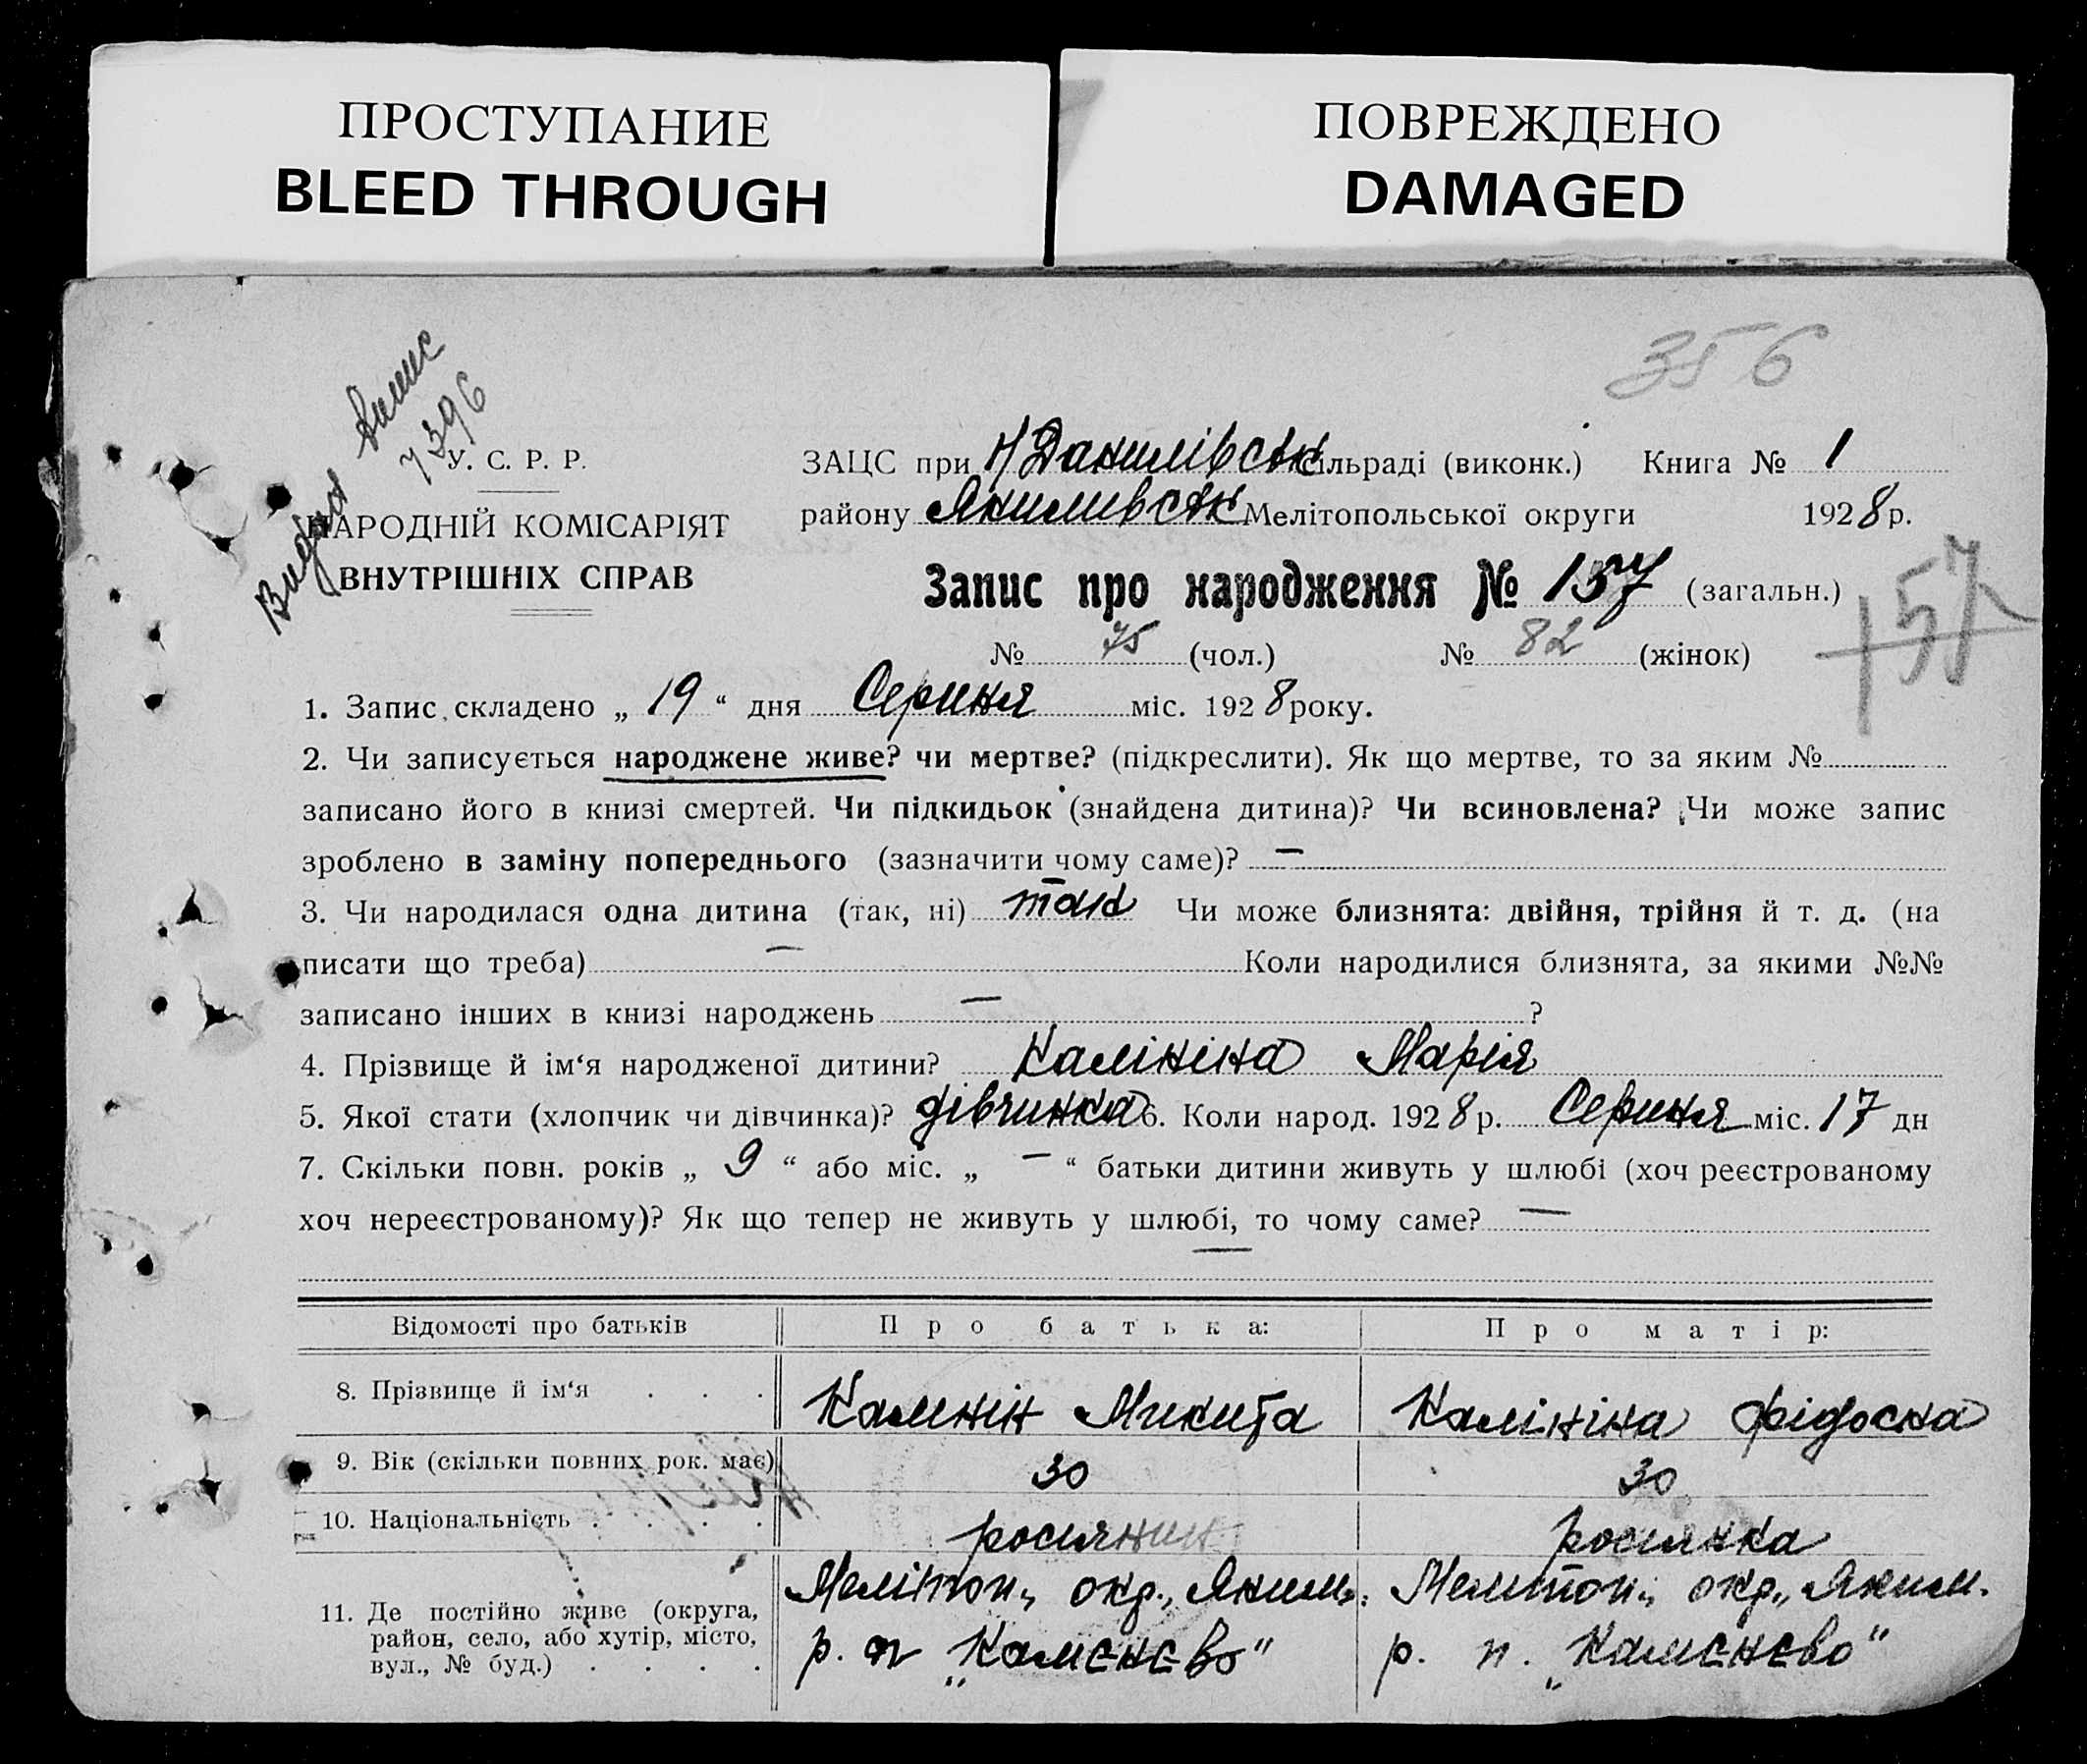 ПРОСТУПАНИЕ
BLEED THROUGH
ПОВРЕЖДЕНО
DAMAGED
356
Видана Випис
7396
У. С. Р. Р.
НАРОДНІЙ КОМІСАРІЯТ
ВНУТРІШНІХ СПРАВ
ЗАЦС при Н Данилівськ сільраді (виконк.) Книга № 1
району Якимивськ Мелітопольської округи 1928 р.
Запис про народження № 157 (загальн.)
157
№ 75 (чол.) № 82 (жінок)
1. Запис складено „ 19 “ дня Серпня міс. 1928 року.
2. Чи записується народжене живе? чи мертве? (підкреслити). Як що мертве, то за яким №
записано його в книзі смертей. Чи підкидьок (знайдена дитина)? Чи всиновлена? Чи може запис
зроблено в заміну попереднього (зазначити чому саме)? —
3. Чи народилася одна дитина (так, ні) так Чи може близнята: двійня, трійня й т. д. (на
писати що треба) — Коли народилися близнята, за якими №№
записано інших в книзі народжень — ?
4. Прізвище й ім‘я народженої дитини? Калініна Марія
5. Якої стати (хлопчик чи дівчинка)? дівчинка 6. Коли народ. 1928 р. Серпня міс. 17 дн
7. Скільки повн. років „ 9 “ або міс. „ — “ батьки дитини живуть у шлюбі (хоч реєстрованому
хоч нереєстрованому)? Як що тепер не живуть у шлюбі, то чому саме? —
Відомості про батьків Про батька: Про матір:
8. Прізвище й ім‘я . . . Калинін Микита Калініна Фідоска
9. Вік (скільки повних рок. має) 30 30
10. Національність . . . . росиянин росиянка
11. Де постійно живе (округа, Мелітоп., окр., Яким. Мелитоп., окр., Яким.
район, село, або хутір, місто, р. п „Камєнєво“ р. п. „Камєнєво“
вул., № буд.) . . . .